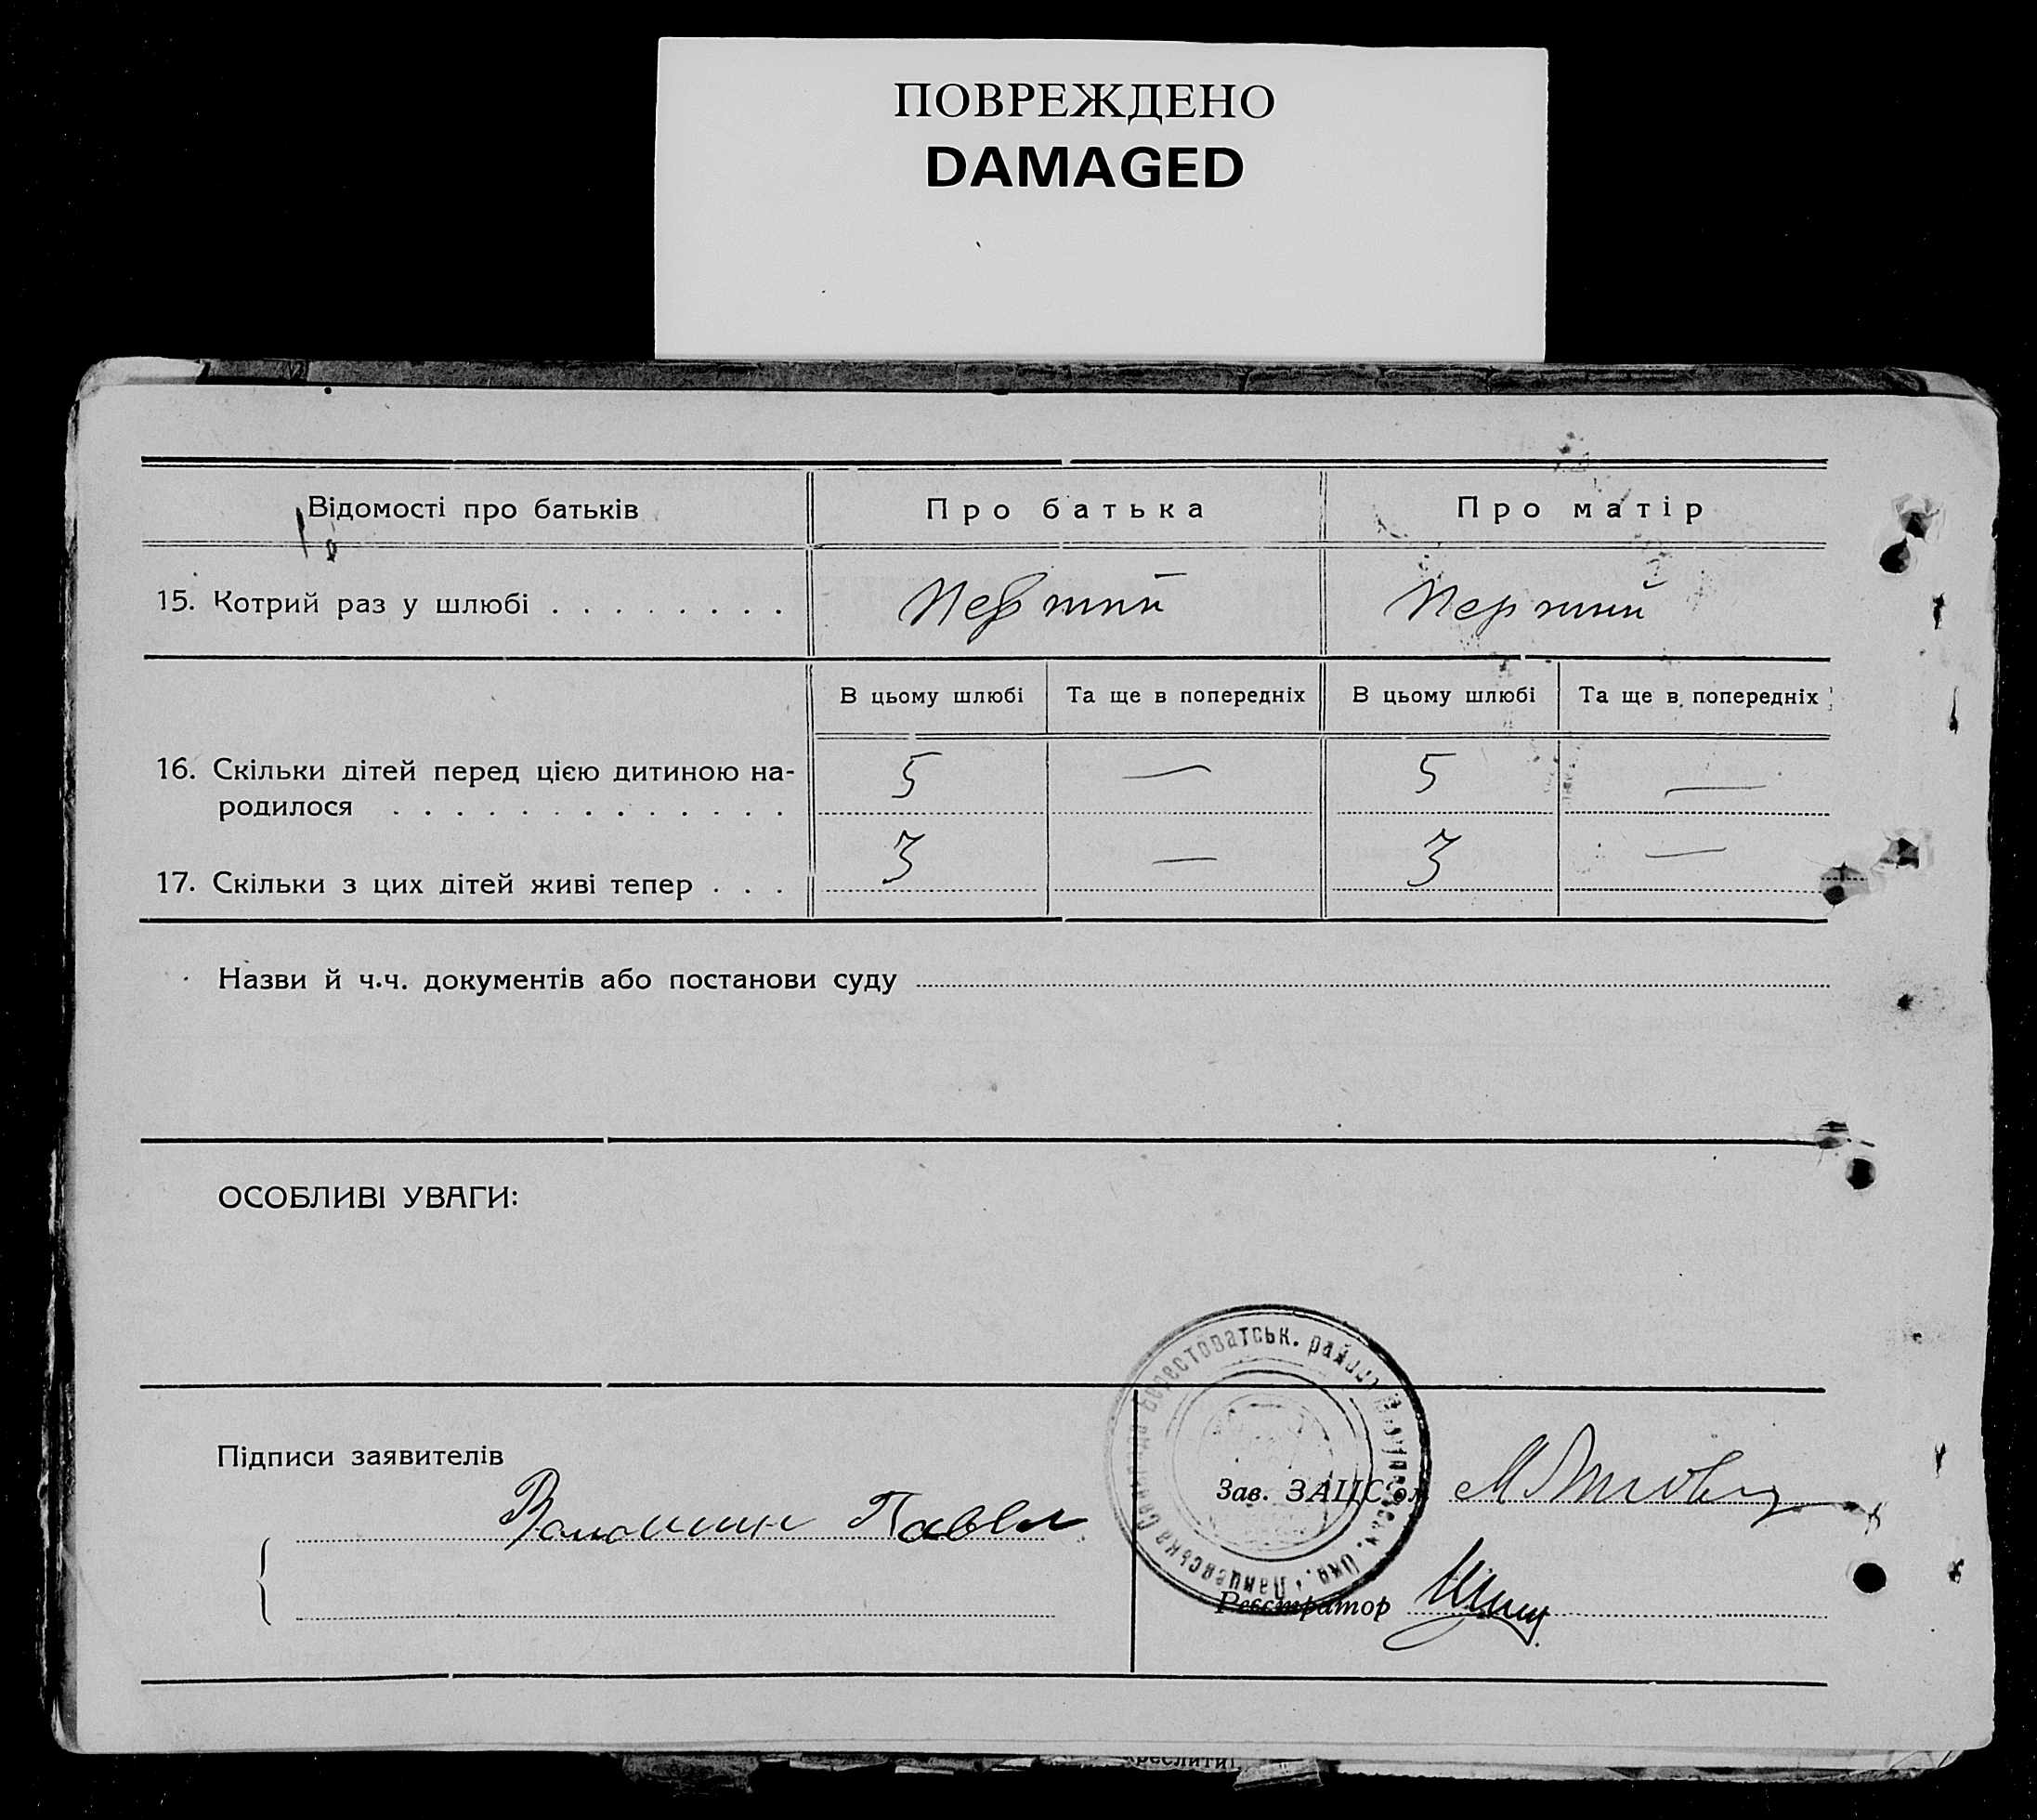 ПОВРЕЖДЕНО
DAMAGED
Відомості про батьків
Про батька
Про матір
15. Котрий раз у шлюбі . . . . . . . .
Перший
Перший
В цьому шлюбі
Та ще в попередніх
В цьому шлюбі
Та ще в попередніх
16. Скільки дітей перед цією дитиною на-
родилося . . . . . . . . . . . . .
5
—
5
—
17. Скільки з цих дітей живі тепер . . .
3
—
3
—
Назви й ч.ч. документів або постанови суду
ОСОБЛИВІ УВАГИ:
Берестоватськ. району
Підписи заявителів
Волошин Павел
Зав. ЗАЦС'ом
Реєстратор
реслити